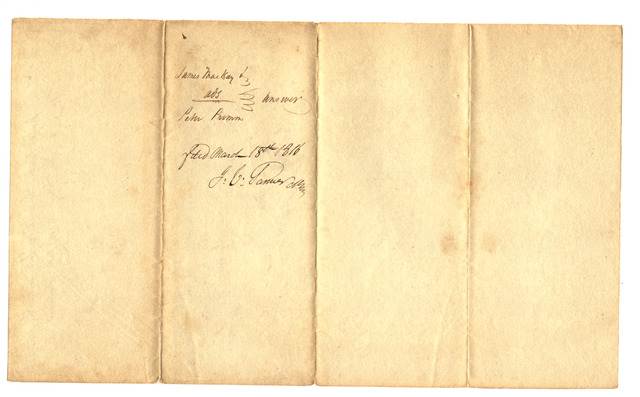 James Mackay
ads Answer
Peter Primm
filed March 18th 1816
J. C.